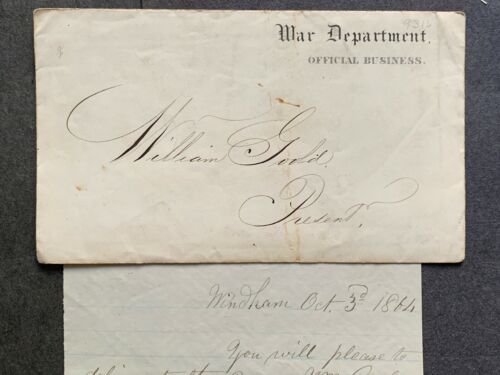 War Department.
OFFICIAL BUSINESS.
William Goold.
Present.
Windham Oct. 3d 1864
You will please to